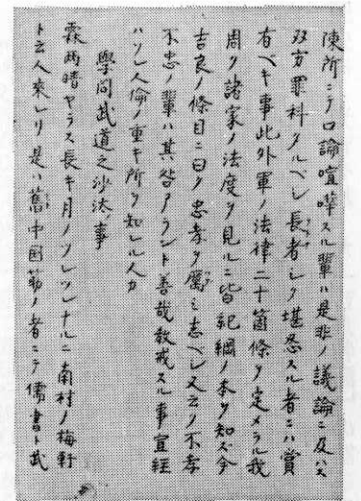 陳所ニテ口論喧嘩スル輩ハ是非ノ議論ニ及ハス
双方罪科タルヘシ長者シク堪忍スル者ニハ賞
有ヘキ事此外軍ノ法律二十箇條ヲ定メラル我
周ク諸家ノ法度ヲ見ルニ皆紀綱ノ本ヲ知ス今
吉良ノ條目ニ曰ク忠孝ヲ屬ミ志ヘシ又云ク不孝
不忠ノ輩ハ其咎アラント善哉教戒スル事宜経
ハソレ人倫ノ重キ所ヲ知レル人カ
學問武道之沙汰ノ事
霖雨晴ヤラス長キ月ノツレツレナルニ南村ノ梅軒
ト云人來レリ是ハ舊中国筋ノ者ニテ儒書ト武